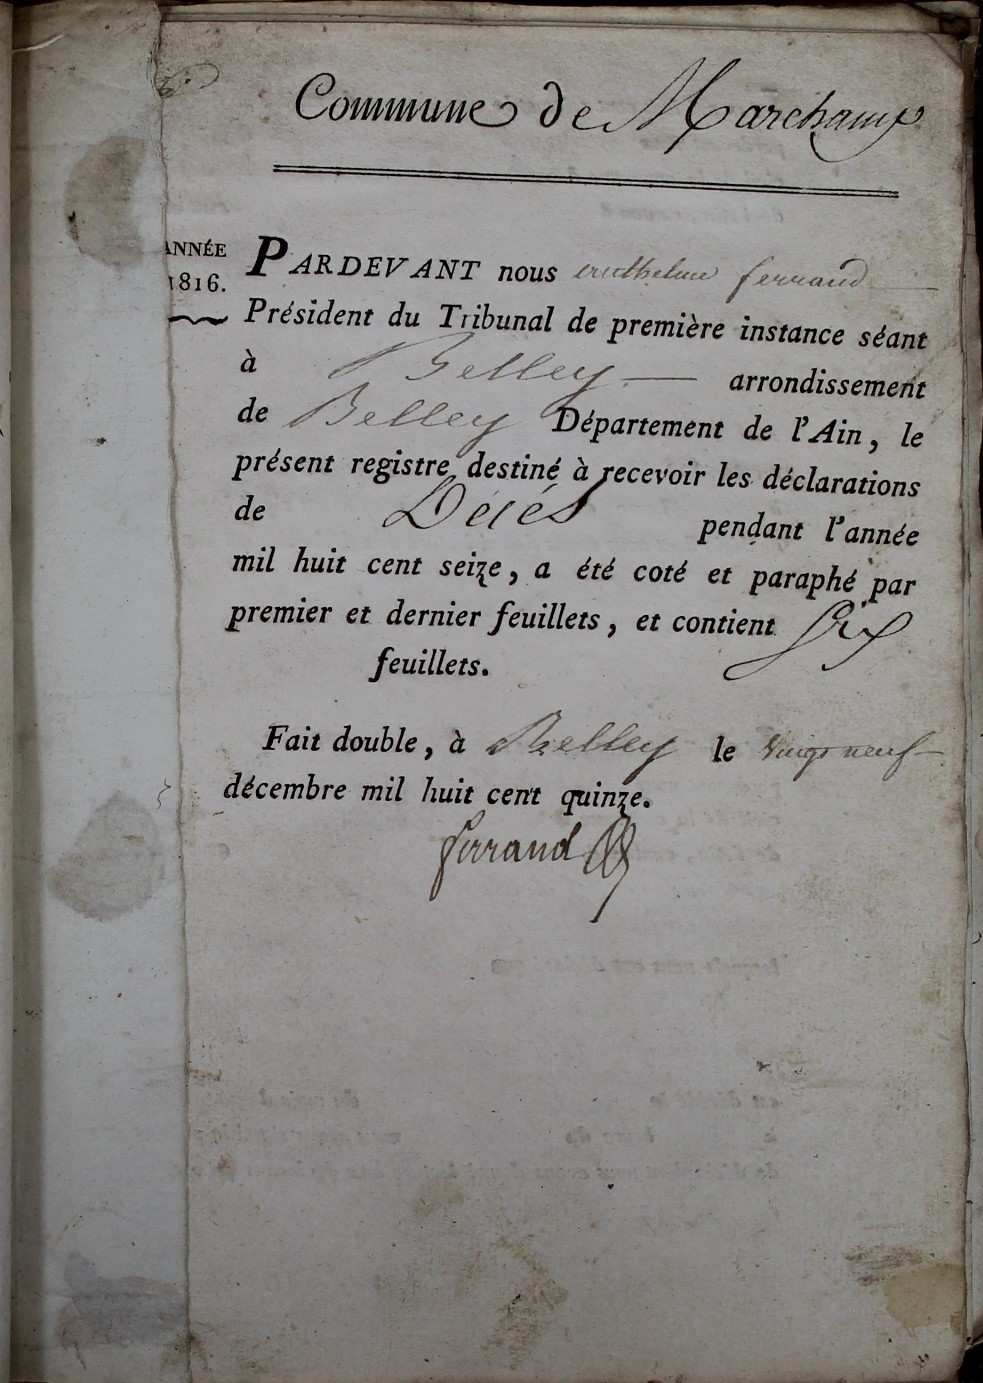 Commune de Marchamp
ANNÉE
1816.
PARDEVANT nous anthelme ferrand
Président du Tribunal de première instance séant
à Belley arrondissement
de Belley Département de l'Ain, le
présent registre destiné à recevoir les déclarations
de Décés pendant l'année
mil huit cent seize, a été coté et paraphé par
premier et dernier feuillets, et contient Six
feuillets.
Fait double, à Belley le vingt neuf
décembre mil huit cent quinze.
ferrand